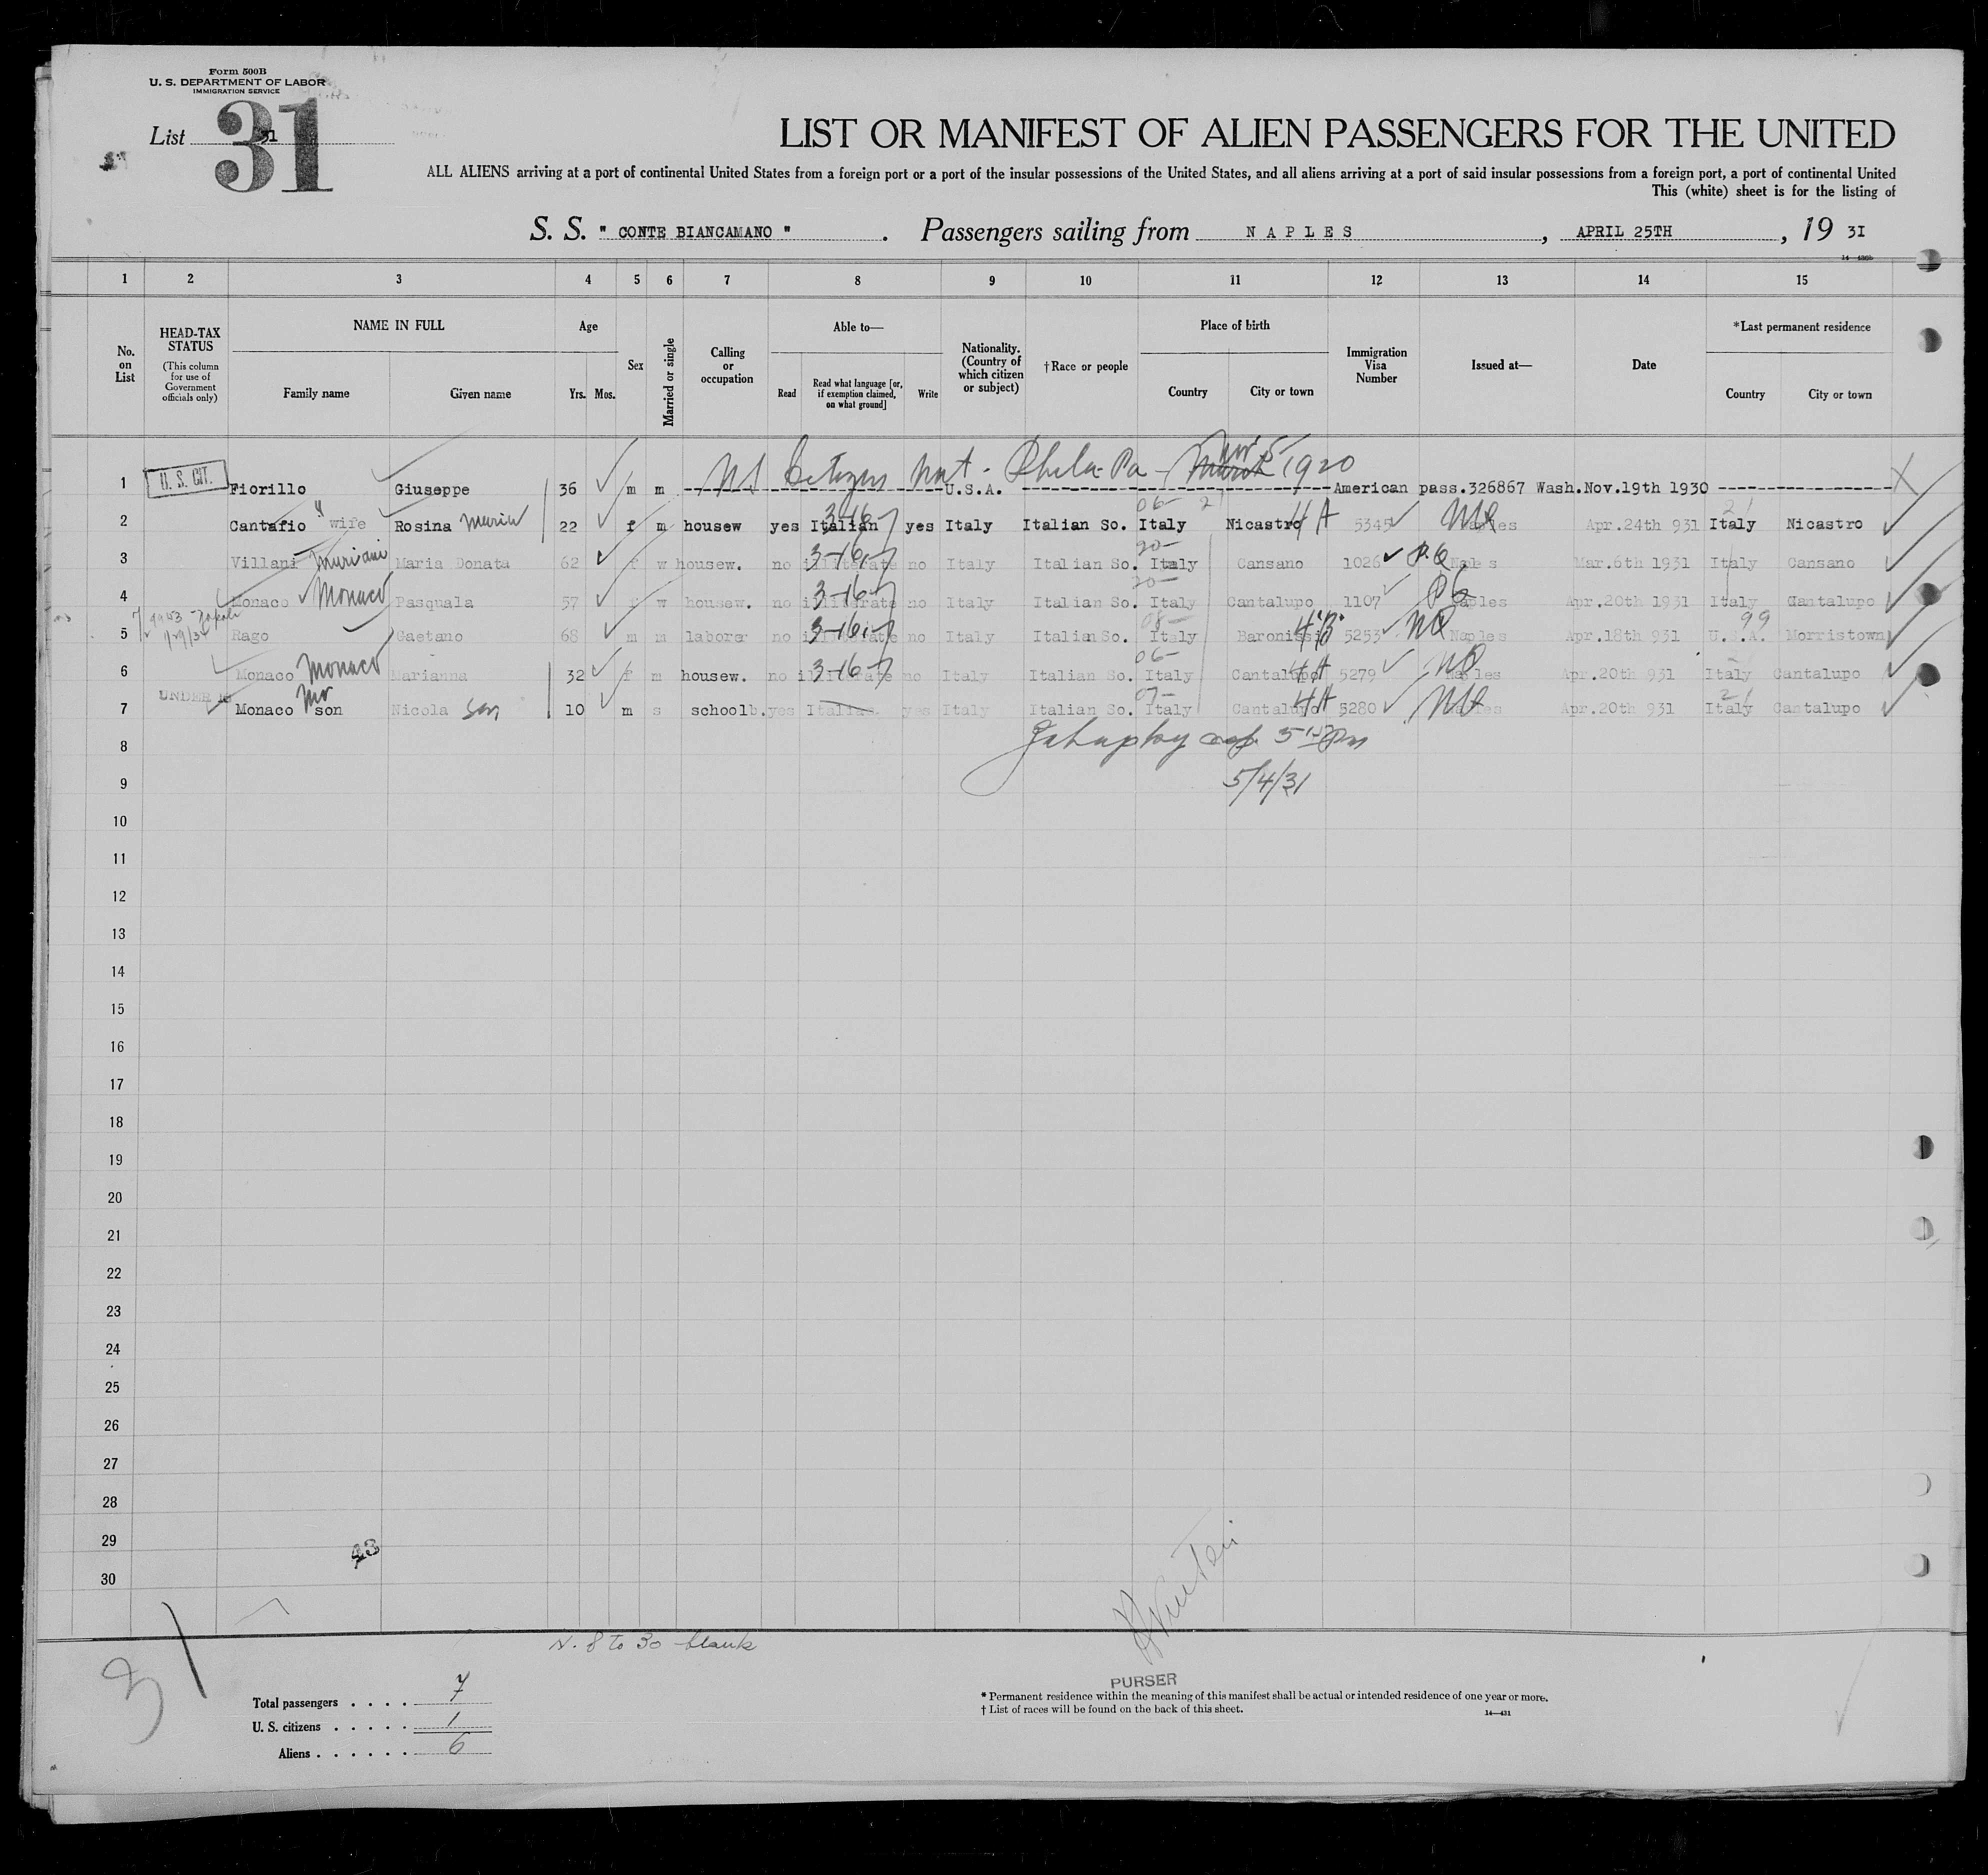 Form 500B
U. S. DEPARTMENT OF LABOR
IMMIGRATION SERVICE
List 31
31
LIST OR MANIFEST OF ALIEN PASSENGERS FOR THE UNITED
ALL ALIENS arriving at a port of continental United States from a foreign port or a port of the insular possessions of the United States, and all aliens arriving at a port of said insular possessions from a foreign port, a port of continental United
This (white) sheet is for the listing of
S. S. " CONTE BIANCAMANO " . Passengers sailing from NAPLES , APRIL 25TH , 19 31
1 2 3 4 5 6 7 8 9 10 11 12 13 14 15
No. on List
HEAD-TAX STATUS (This column for use of Government officials only)
NAME IN FULL Family name Given name
Age Yrs. Mos.
Sex
Married or single
Calling or occupation
Able to— Read Read what language [or, if exemption claimed, on what ground] Write
Nationality. (Country of which citizen or subject)
†Race or people
Place of birth Country City or town
Immigration Visa Number
Issued at—
Date
*Last permanent residence Country City or town
US Citizen Nat. Phila. Pa - March 5 1920
1 U. S. CIT. Fiorillo Giuseppe 36 m m U.S.A. American pass.326867 Wash.Nov.19th 1930
2 Cantafio " wife Rosina Maria 22 f m housew yes Italian 3-16- yes Italy Italian So. 06- Italy Nicastro 4A 5345 Naples Apr.24th 931 Italy Nicastro
3 Villani Maria Donata 62 f w housew. no illiterate 3-16- no Italy Italian So. 20- Italy Cansano 1026 Naples Mar.6th 1931 Italy Cansano
4 Monaco Monaco Pasquala 57 f w housew. no illiterate 3-16- no Italy Italian So. 20- Italy Cantalupo 1107 Naples Apr.20th 1931 Italy Cantalupo
5 Rago Gaetano 68 m m laborer no illiterate 3-16- no Italy Italian So. 08- Italy Baronissi 4B 5253 NQ Naples Apr.18th 931 99 U.S.A. Morristown
6 Monaco Monaco Marianna 32 f m housew. no illiterate 3-16- no Italy Italian So. 06- Italy Cantalupo 4A 5279 NQ Naples Apr.20th 931 Italy Cantalupo
7 UNDER 16 Monaco son Nicola Son 10 m s schoolb. yes Italian yes Italy Italian So. 07- Italy Cantalupo 4A 5280 NQ Naples Apr.20th 931 21 Italy Cantalupo
8
5/4/31
9
10
11
12
13
14
15
16
17
18
19
20
21
22
23
24
25
26
27
28
29
43
30
N. 8 to 30 blank
31
PURSER
Total passengers . . . . 7
U. S. citizens . . . . . 1
Aliens . . . . . . 6
* Permanent residence within the meaning of this manifest shall be actual or intended residence of one year or more.
† List of races will be found on the back of this sheet.
14—431